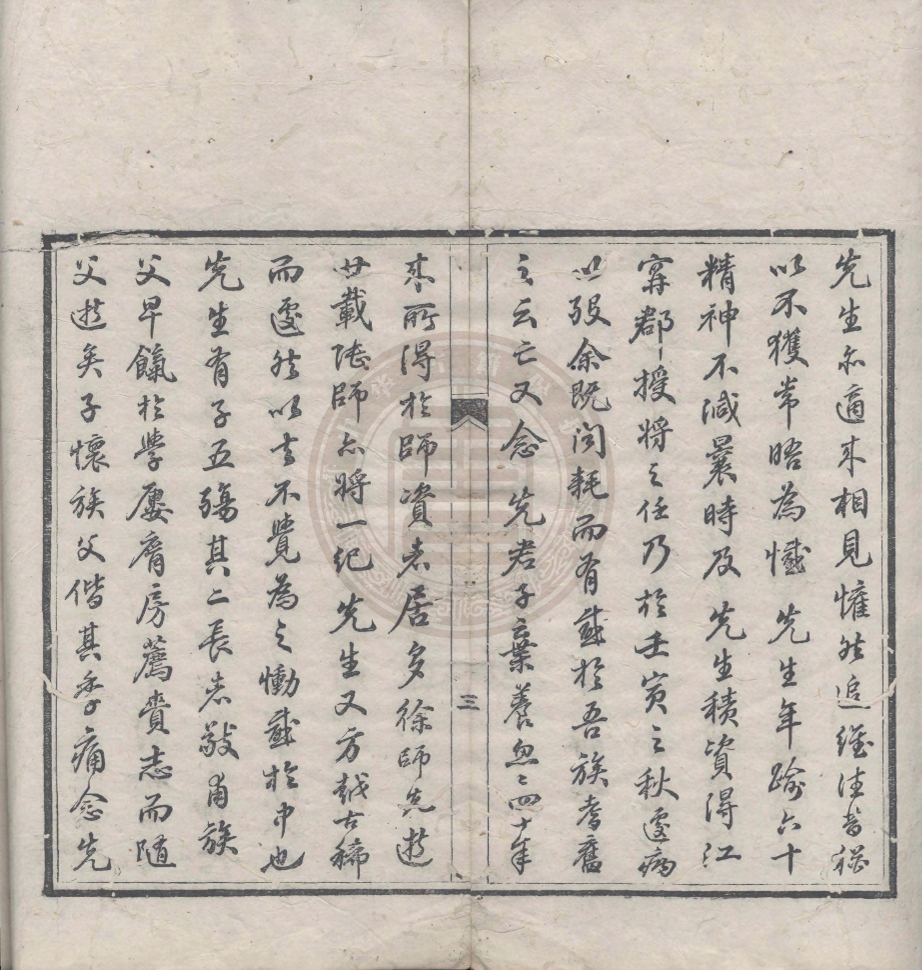 先生亦適來相見懽然追維往昔猶
以不獲常晤為憾先生年踰六十
精神不減曩時及先生積資得江
寧郡授將之任乃於壬寅之秋遽病
以歿余既聞耗而有感於吾族耆舊
之云亡又念先君子棄養忽忽四十年
來所得於師資者居多徐師先逝
廿載陸師亦將一紀先生又方越古稀
而遽然以去不覺為之慟感於中也
先生有子五殤其二長者敬甫族
父早餼於學屢膺房薦賷志而隨
父逝矣子懷族父偕其季痛念先
三